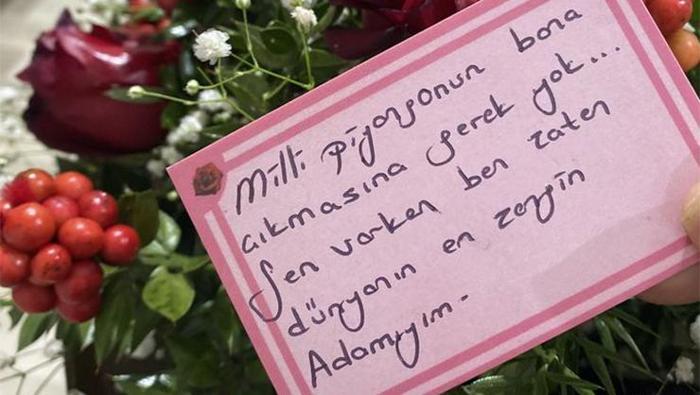 Milli piyangonun bana
çıkmasına gerek yok...
Sen varken ben zaten
dünyanın en zengin
Adamıyım.